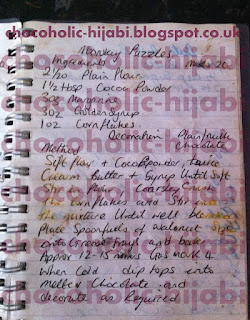 chocoholic-hijabi.blogspot.co.uk
Monkey Puzzles
Ingredients Makes 20
2½oz Plain Flour
1½ tbsp Cocoa Powder
3oz Margarine
3oz Golden Syrup
1oz Cornflakes
Decoration Plain/milk Chocolate
Method
Sift Flour + Cocoa Powder twice
Cream butter + Syrup until soft
Stir in Flour, Coarsely Crush
the Cornflakes and Stir into
the mixture until well blended
Place Spoonfuls of walnut size
onto Grease trays and bake
Approx 12-15 mins Gas mark 4
When Cold dip tops into
melted Chocolate and
decorate as Required
chocoholic-hijabi
chocoholic-hijabi
chocoholic-hijabi